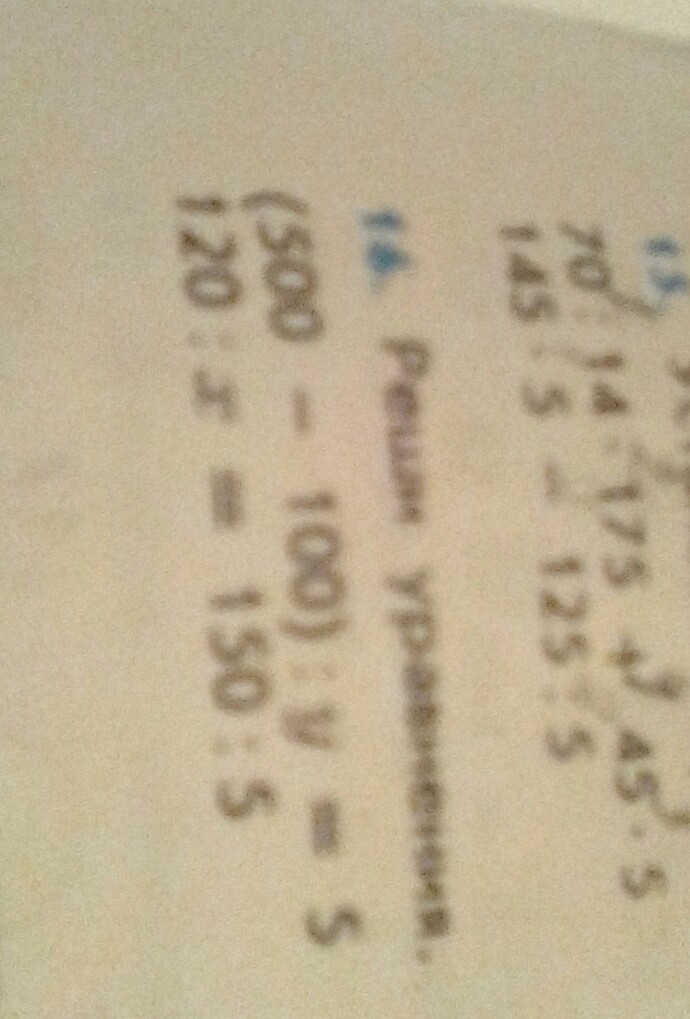 15.
70 : 14 · 175 + 45 · 5
145 : 5 − 125 : 5
16. Реши уравнения.
(500 − 100) : y = 5
120 : x = 150 : 5